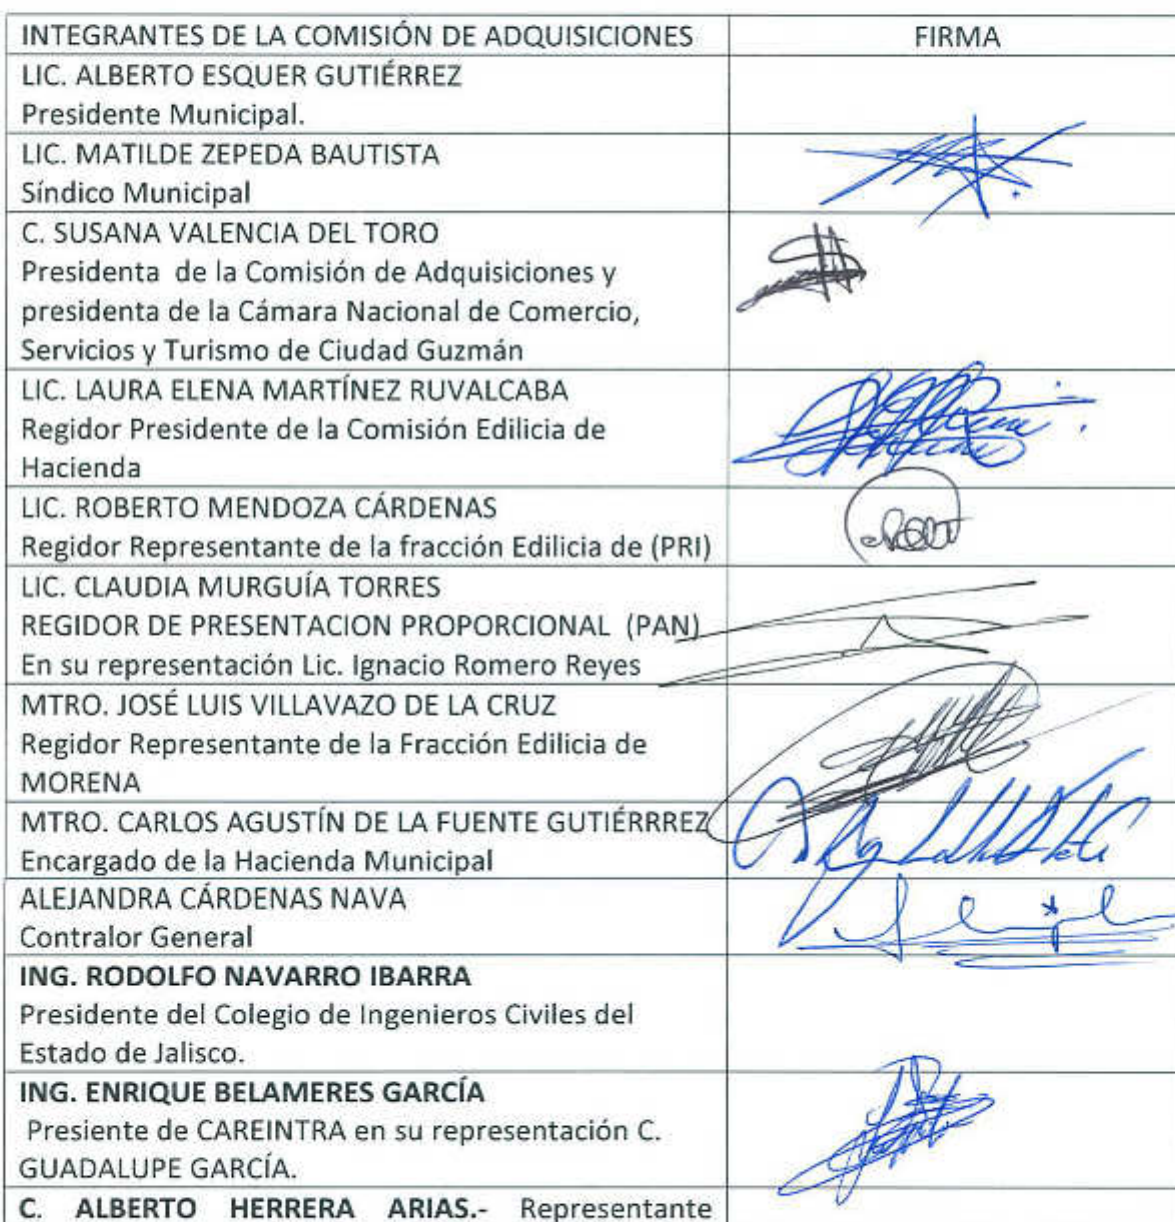 INTEGRANTES DE LA COMISIÓN DE ADQUISICIONES FIRMA
LIC. ALBERTO ESQUER GUTIÉRREZ
Presidente Municipal.
LIC. MATILDE ZEPEDA BAUTISTA
Síndico Municipal
C. SUSANA VALENCIA DEL TORO
Presidenta de la Comisión de Adquisiciones y
presidenta de la Cámara Nacional de Comercio,
Servicios y Turismo de Ciudad Guzmán
LIC. LAURA ELENA MARTÍNEZ RUVALCABA
Regidor Presidente de la Comisión Edilicia de
Hacienda
LIC. ROBERTO MENDOZA CÁRDENAS
Regidor Representante de la fracción Edilicia de (PRI)
LIC. CLAUDIA MURGUÍA TORRES
REGIDOR DE PRESENTACION PROPORCIONAL (PAN)
En su representación Lic. Ignacio Romero Reyes
MTRO. JOSÉ LUIS VILLAVAZO DE LA CRUZ
Regidor Representante de la Fracción Edilicia de
MORENA
MTRO. CARLOS AGUSTÍN DE LA FUENTE GUTIÉRRREZ
Encargado de la Hacienda Municipal
ALEJANDRA CÁRDENAS NAVA
Contralor General
ING. RODOLFO NAVARRO IBARRA
Presidente del Colegio de Ingenieros Civiles del
Estado de Jalisco.
ING. ENRIQUE BELAMERES GARCÍA
Presiente de CAREINTRA en su representación C.
GUADALUPE GARCÍA.
C. ALBERTO HERRERA ARIAS.- Representante